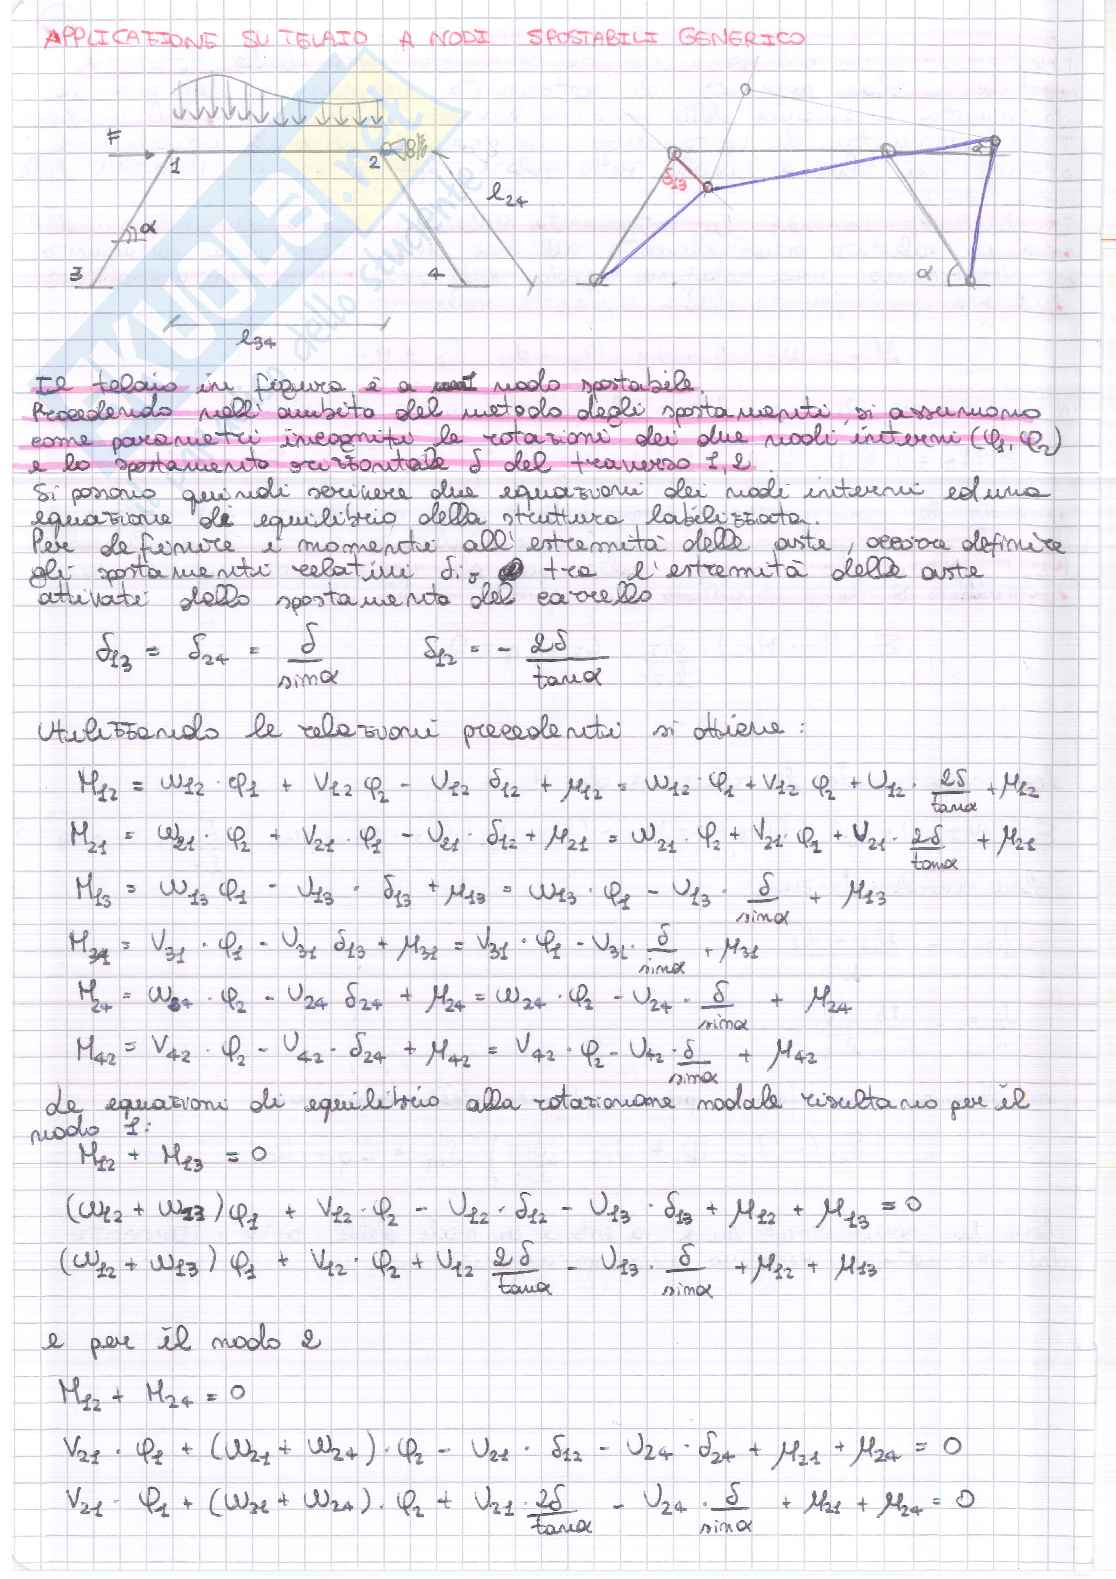 APPLICAZIONE SU TELAIO A NODI SPOSTABILI GENERICO
F
1
2
l24
α
3
4
l34
δ13
α
α
SKUOLA.net
dello studente
Il telaio in figura è a nodo spostabile.
Procedendo nell'ambito del metodo degli spostamenti, si assumono
come parametri incogniti le rotazioni dei due nodi interni (φ1, φ2)
e lo spostamento orizzontale δ del traverso 1,2.
Si possono quindi scrivere due equazioni dei nodi interni ed una
equazione di equilibrio della struttura labilizzata.
Per definire i momenti all'estremità delle aste, occorre definire
gli spostamenti relativi δij tra l'estremità delle aste
attivati dallo spostamento del carrello
δ13 = δ24 = δ/sinα δ12 = - 2δ/tanα
Utilizzando le relazioni precedenti si ottiene:
M12 = W12 · φ1 + V12 φ2 - U12 δ12 + μ12 = W12 · φ1 + V12 φ2 + U12 · 2δ/tanα + μ12
M21 = W21 · φ2 + V21 · φ1 - U21 · δ12 + μ21 = W21 · φ2 + V21 · φ1 + U21 · 2δ/tanα + μ21
M13 = W13 φ1 - U13 · δ13 + μ13 = W13 · φ1 - U13 · δ/sinα + μ13
M31 = V31 · φ1 - U31 δ13 + μ31 = V31 · φ1 - U31 · δ/sinα + μ31
M24 = W24 · φ2 - U24 δ24 + μ24 = W24 · φ2 - U24 · δ/sinα + μ24
M42 = V42 · φ2 - U42 · δ24 + μ42 = V42 · φ2 - U42 · δ/sinα + μ42
Le equazioni di equilibrio alla rotazionane nodale risultano per il
nodo 1:
M12 + M13 = 0
(W12 + W13) φ1 + V12 · φ2 - U12 · δ12 - U13 · δ13 + μ12 + μ13 = 0
(W12 + W13) φ1 + V12 · φ2 + U12 2δ/tanα - U13 · δ/sinα + μ12 + μ13
e per il nodo 2
M12 + M24 = 0
V21 · φ1 + (W21 + W24) · φ2 - U21 · δ12 - U24 · δ24 + μ21 + μ24 = 0
V21 · φ1 + (W21 + W24) · φ2 + U21 · 2δ/tanα - U24 · δ/sinα + μ21 + μ24 = 0